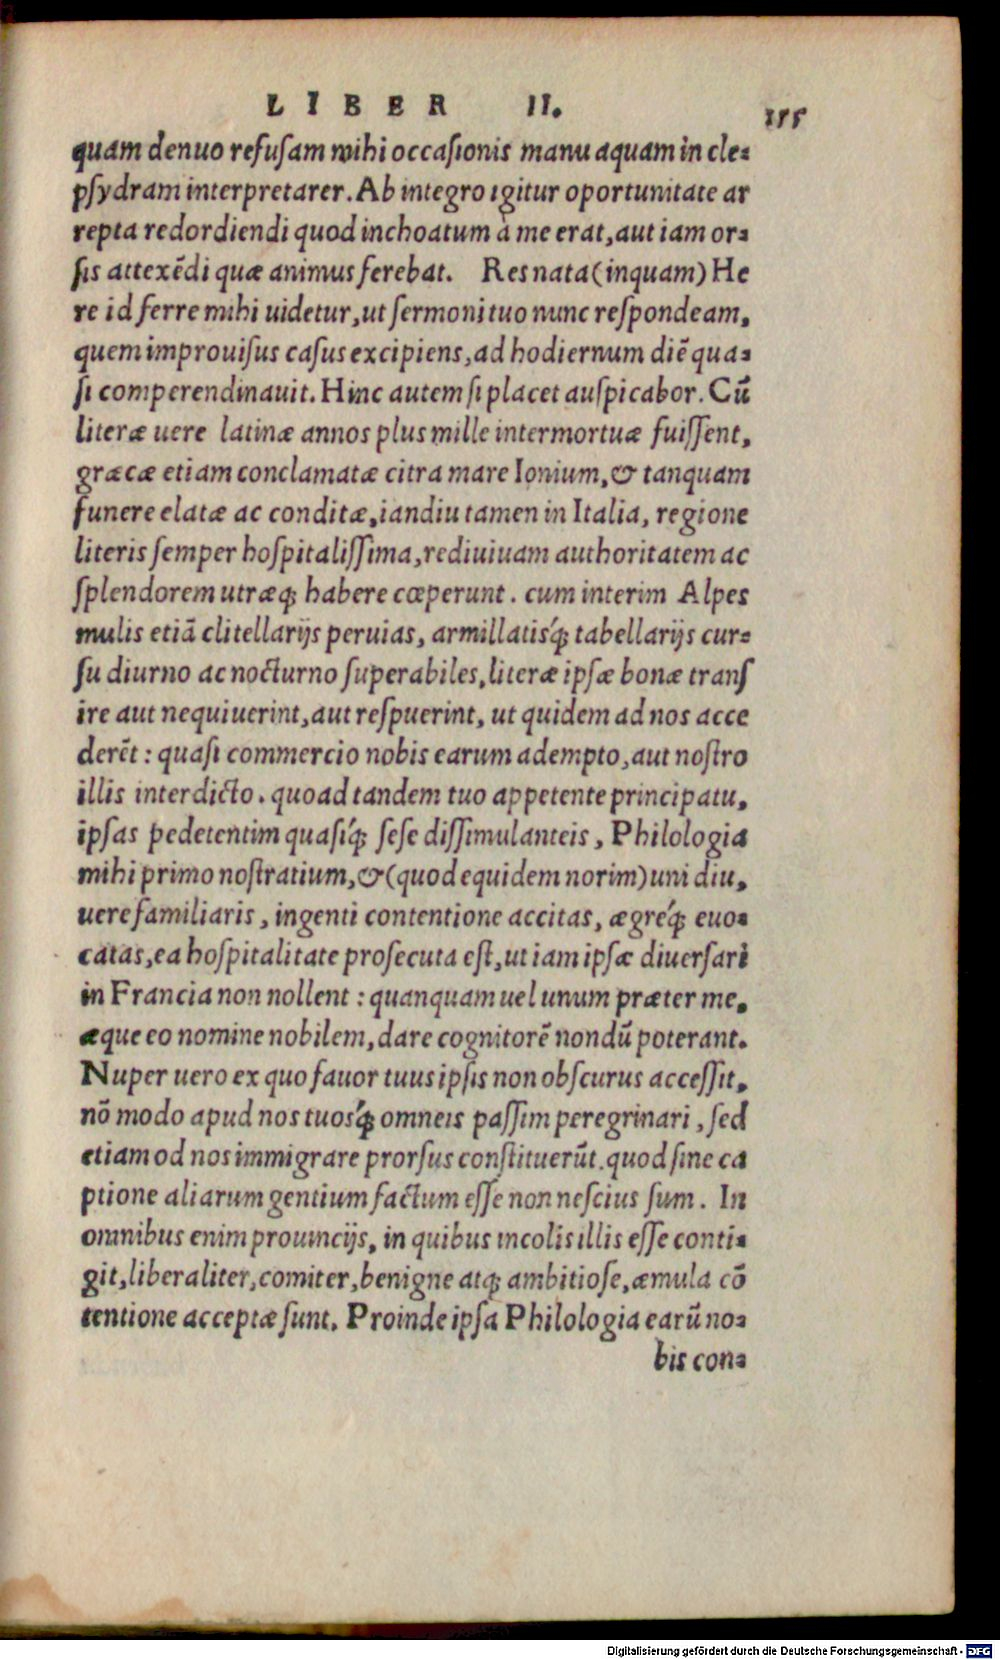 LIBER II. 155
quam denuo refusam mihi occasionis manu aquam in cle=
psydram interpretarer. Ab integro igitur oportunitate ar
repta redordiendi quod inchoatum à me erat, aut iam or=
sis attexẽdi quæ animus ferebat. Res nata (inquam) He
re id ferre mihi uidetur, ut sermoni tuo nunc respondeam,
quem improuisus casus excipiens, ad hodiernum diẽ qua=
si comperendinauit. Hinc autem si placet auspicabor. Cũ
literæ uere latinæ annos plus mille intermortuæ fuissent,
græcæ etiam conclamatæ citra mare Ionium, & tanquam
funere elatæ ac conditæ, iandiu tamen in Italia, regione
literis semper hospitalissima, rediuiuam authoritatem ac
splendorem utræq; habere cœperunt. cum interim Alpes
mulis etiã clitellarijs peruias, armillatisq́; tabellarijs cur=
su diurno ac nocturno superabiles, literæ ipsæ bonæ trans
ire aut nequiuerint, aut respuerint, ut quidem ad nos acce
derẽt : quasi commercio nobis earum adempto, aut nostro
illis interdicto. quoad tandem tuo appetente principatu,
ipsas pedetentim quasiq́; sese dissimulanteis, Philologia
mihi primo nostratium, & (quod equidem norim) uni diu,
uere familiaris, ingenti contentione accitas, ægreq́; euo=
catas, ea hospitalitate prosecuta est, ut iam ipsæ diuersari
in Francia non nollent : quanquam uel unum præter me,
æque eo nomine nobilem, dare cognitorẽ nondũ poterant.
Nuper uero ex quo fauor tuus ipsis non obscurus accessit,
nõ modo apud nos tuosq́; omneis passim peregrinari, sed
etiam od nos immigrare prorsus constituerũt. quod sine ca
ptione aliarum gentium factum esse non nescius sum. In
omnibus enim prouincijs, in quibus incolis illis esse conti=
git, liberaliter, comiter, benigne atq; ambitiose, æmula cõ
tentione acceptæ sunt. Proinde ipsa Philologia earũ no=
bis con=
Digitalisierung gefördert durch die Deutsche Forschungsgemeinschaft - DFG